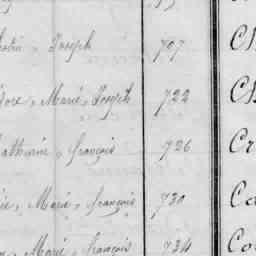 Joseph 707 Ch
Marie Joseph 722 Ch
Catherine, françois 726 Cr
Marie, françois 730 Ca
Marie, françois 734 Co